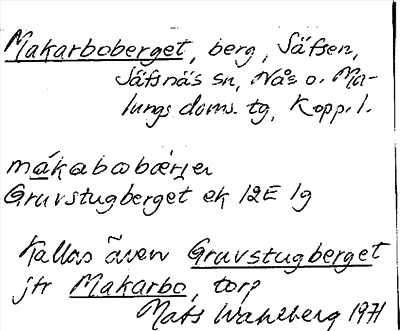 Makarboberget, berg, Säfsen,
Säfsnäs sn, Nås o. Ma-
lungs doms. tg, Kopp. l.
mákabωbærjer
Gruvstugberget ek 12E 1g
Kallas även Gruvstugberget
jfr Makarbo, torp
Mats Wahlberg 1971